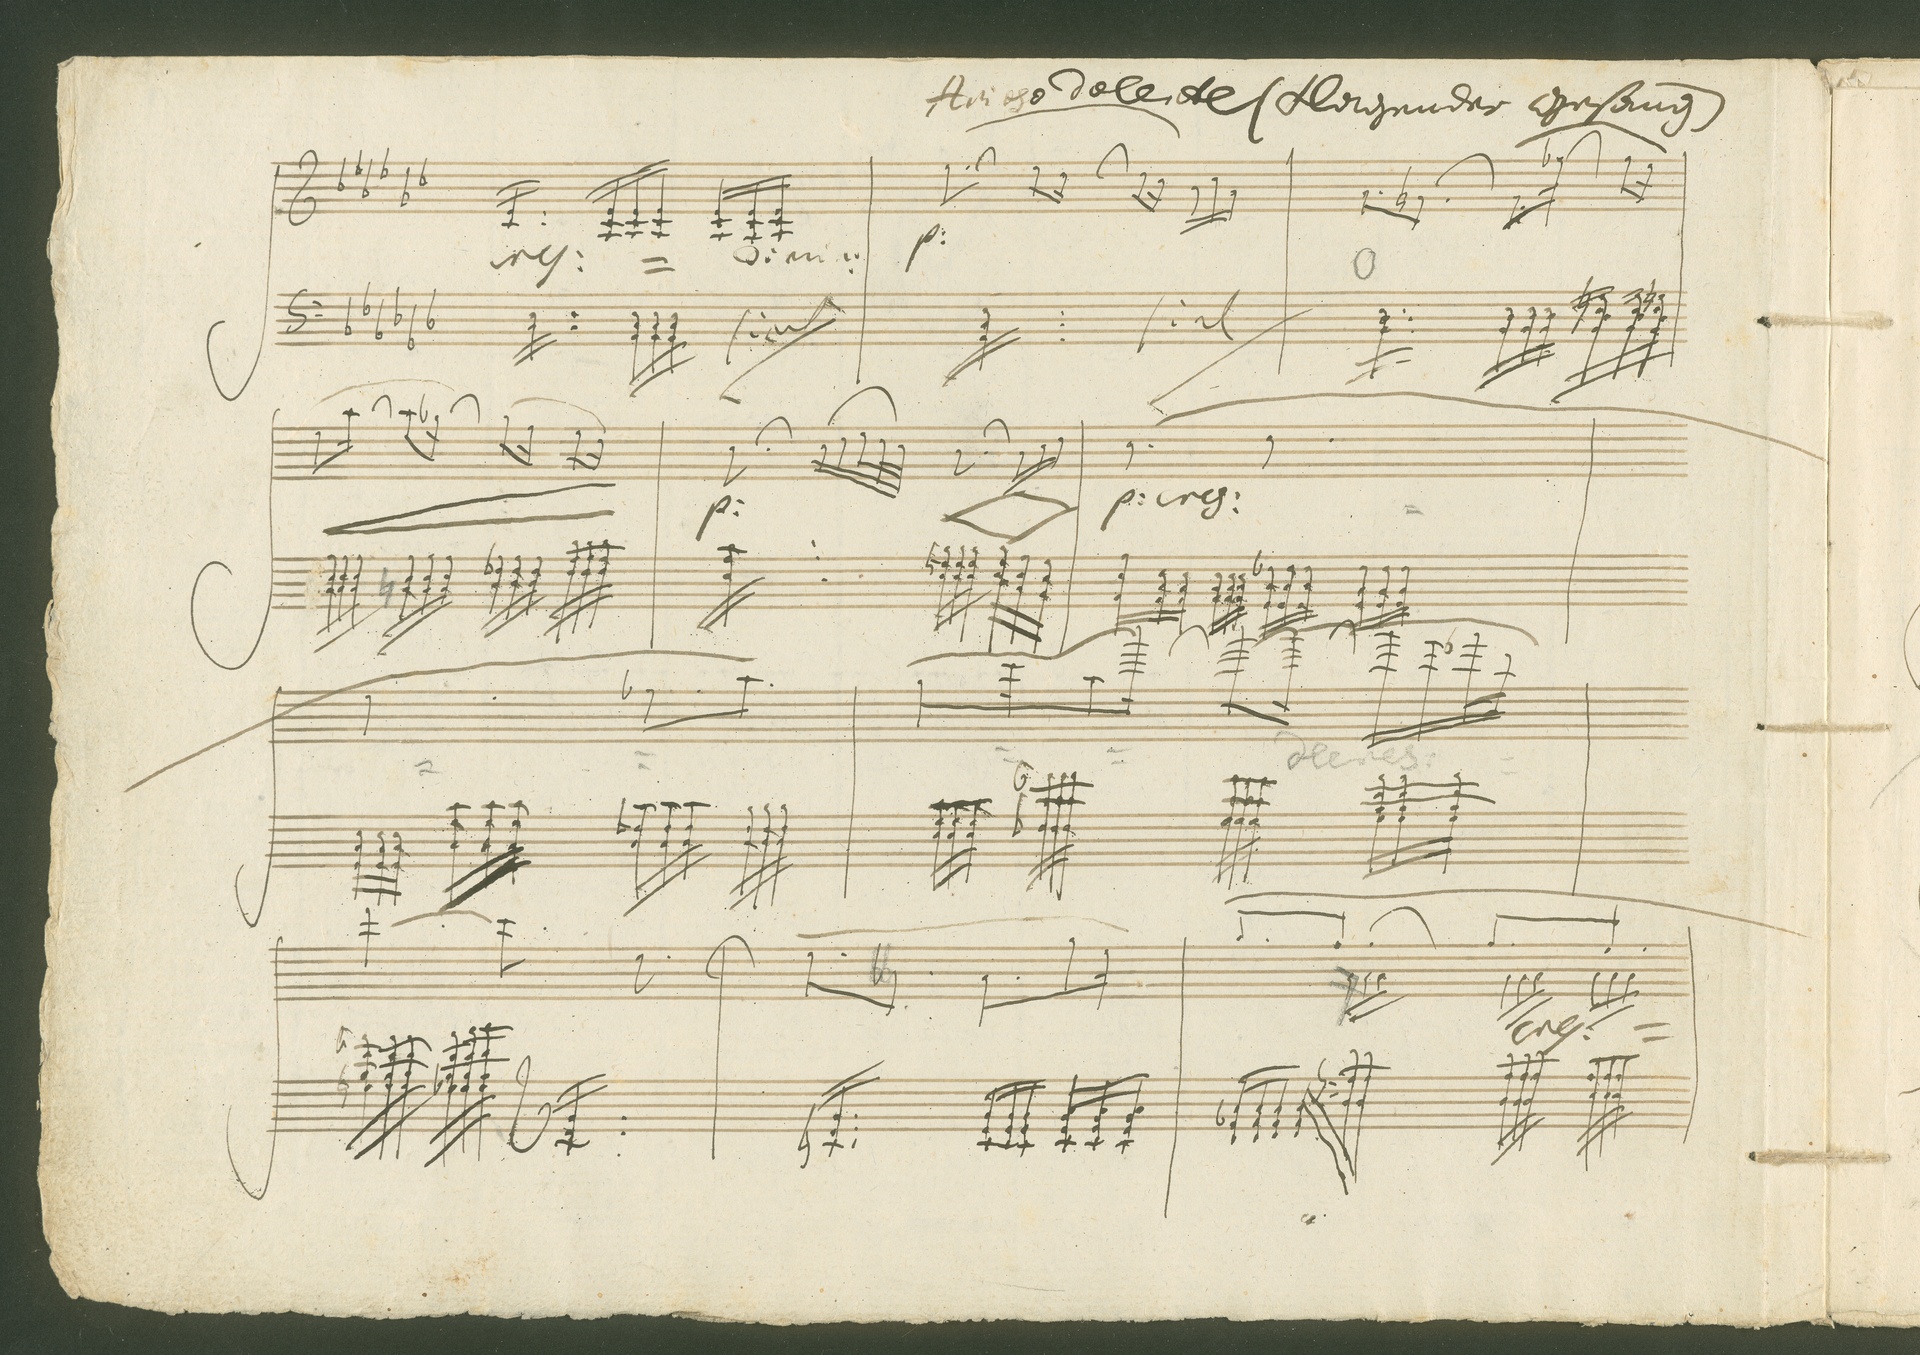 Arioso dolente (Klagender Gesang)
cresc: = dimin:
p:
simil
simil
p:
p: cresc: =
= =
= = decresc: =
cresc: =